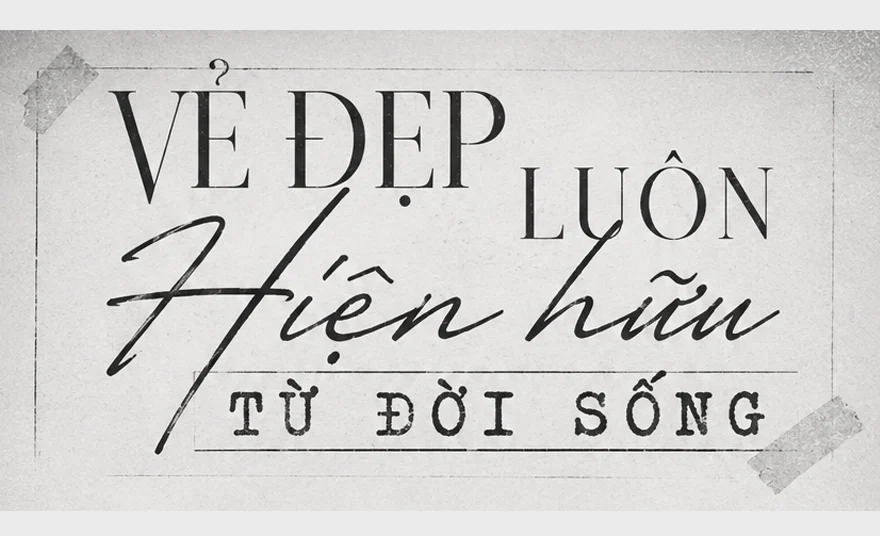 VẺ ĐẸP
LUÔN
Hiện hữu
TỪ ĐỜI SỐNG